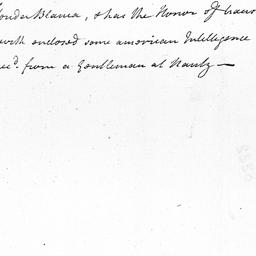 & has the Honor of
enclosed some american Intelligence
from a Gentleman at Nantz —